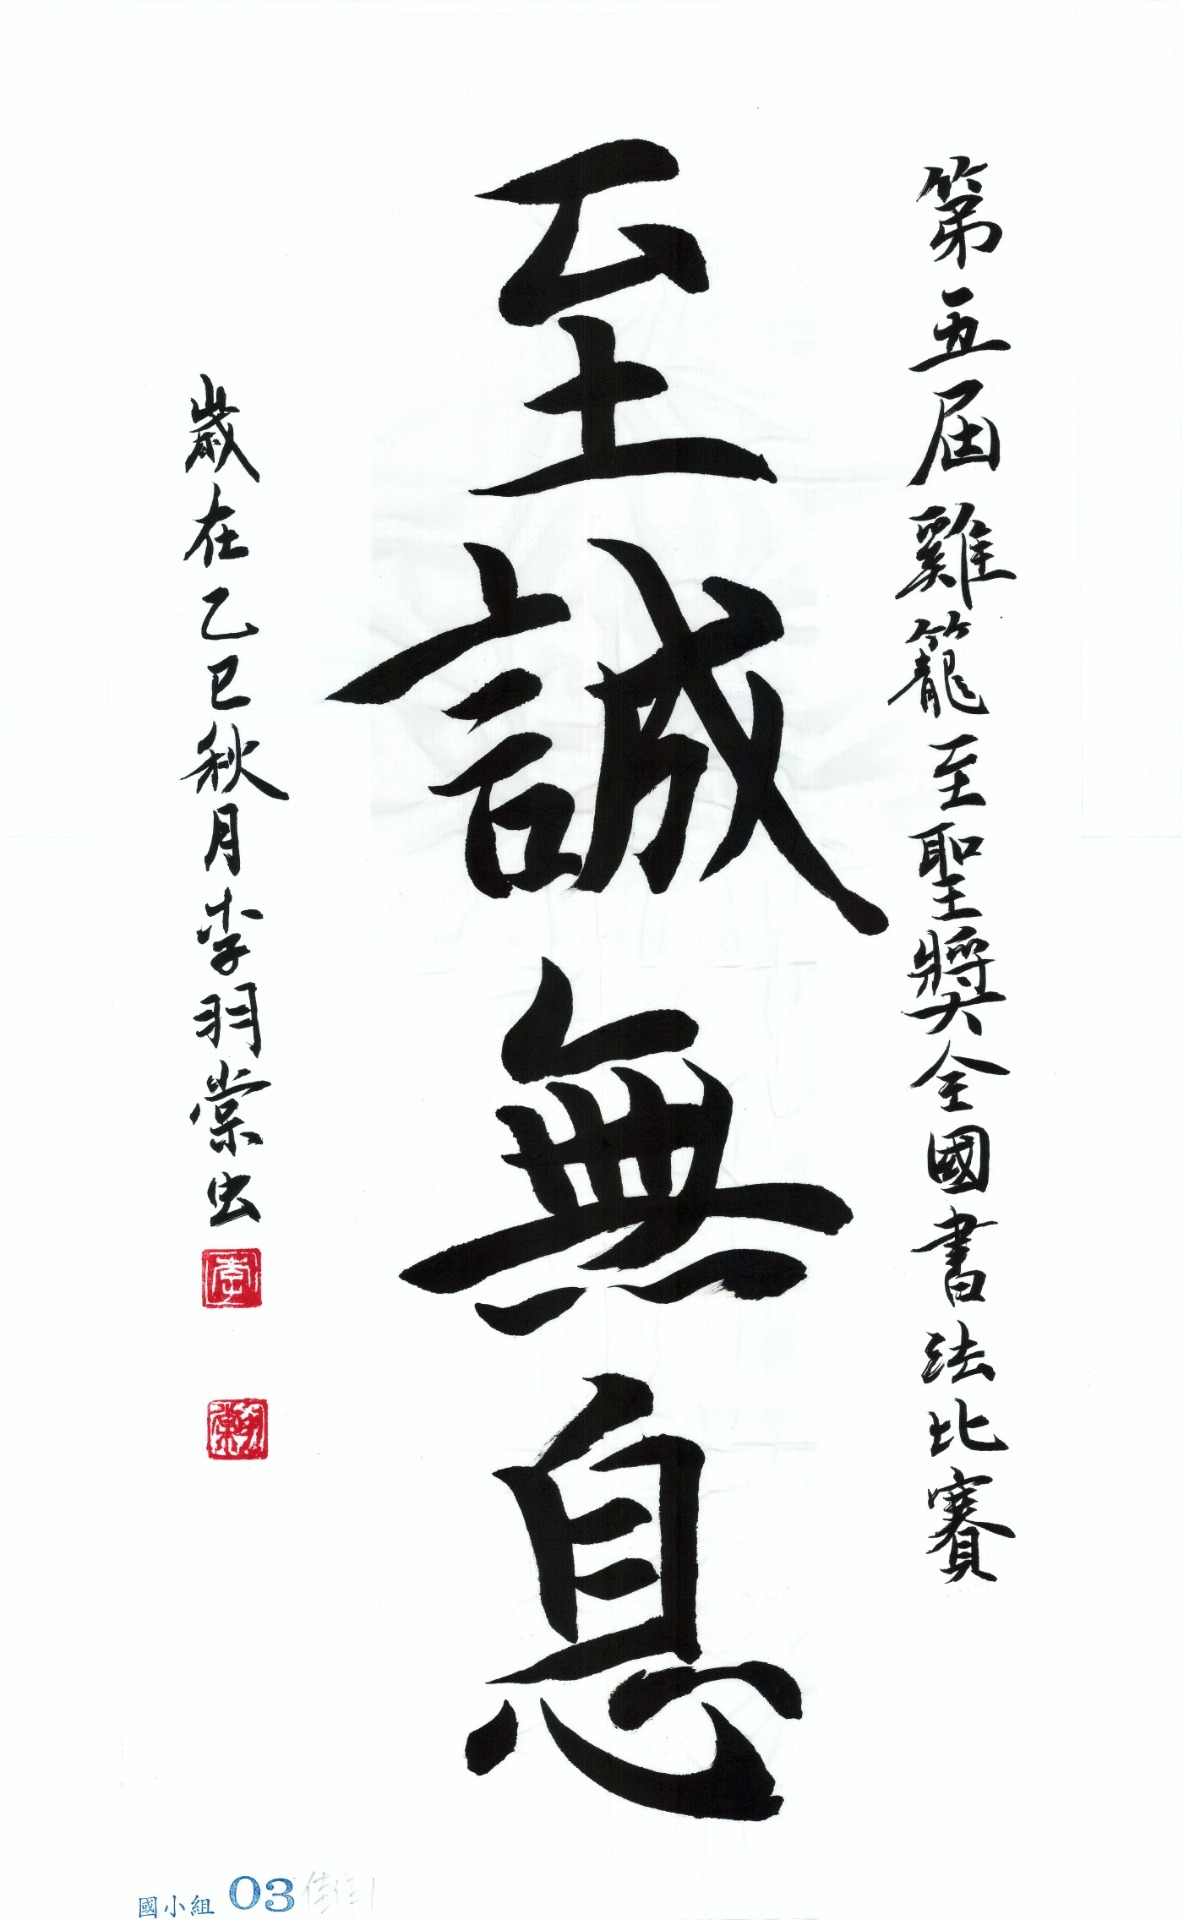 第五屆雞籠至聖獎全國書法比賽
至誠無息
歲在乙巳秋月李羽棠書
國小組 03